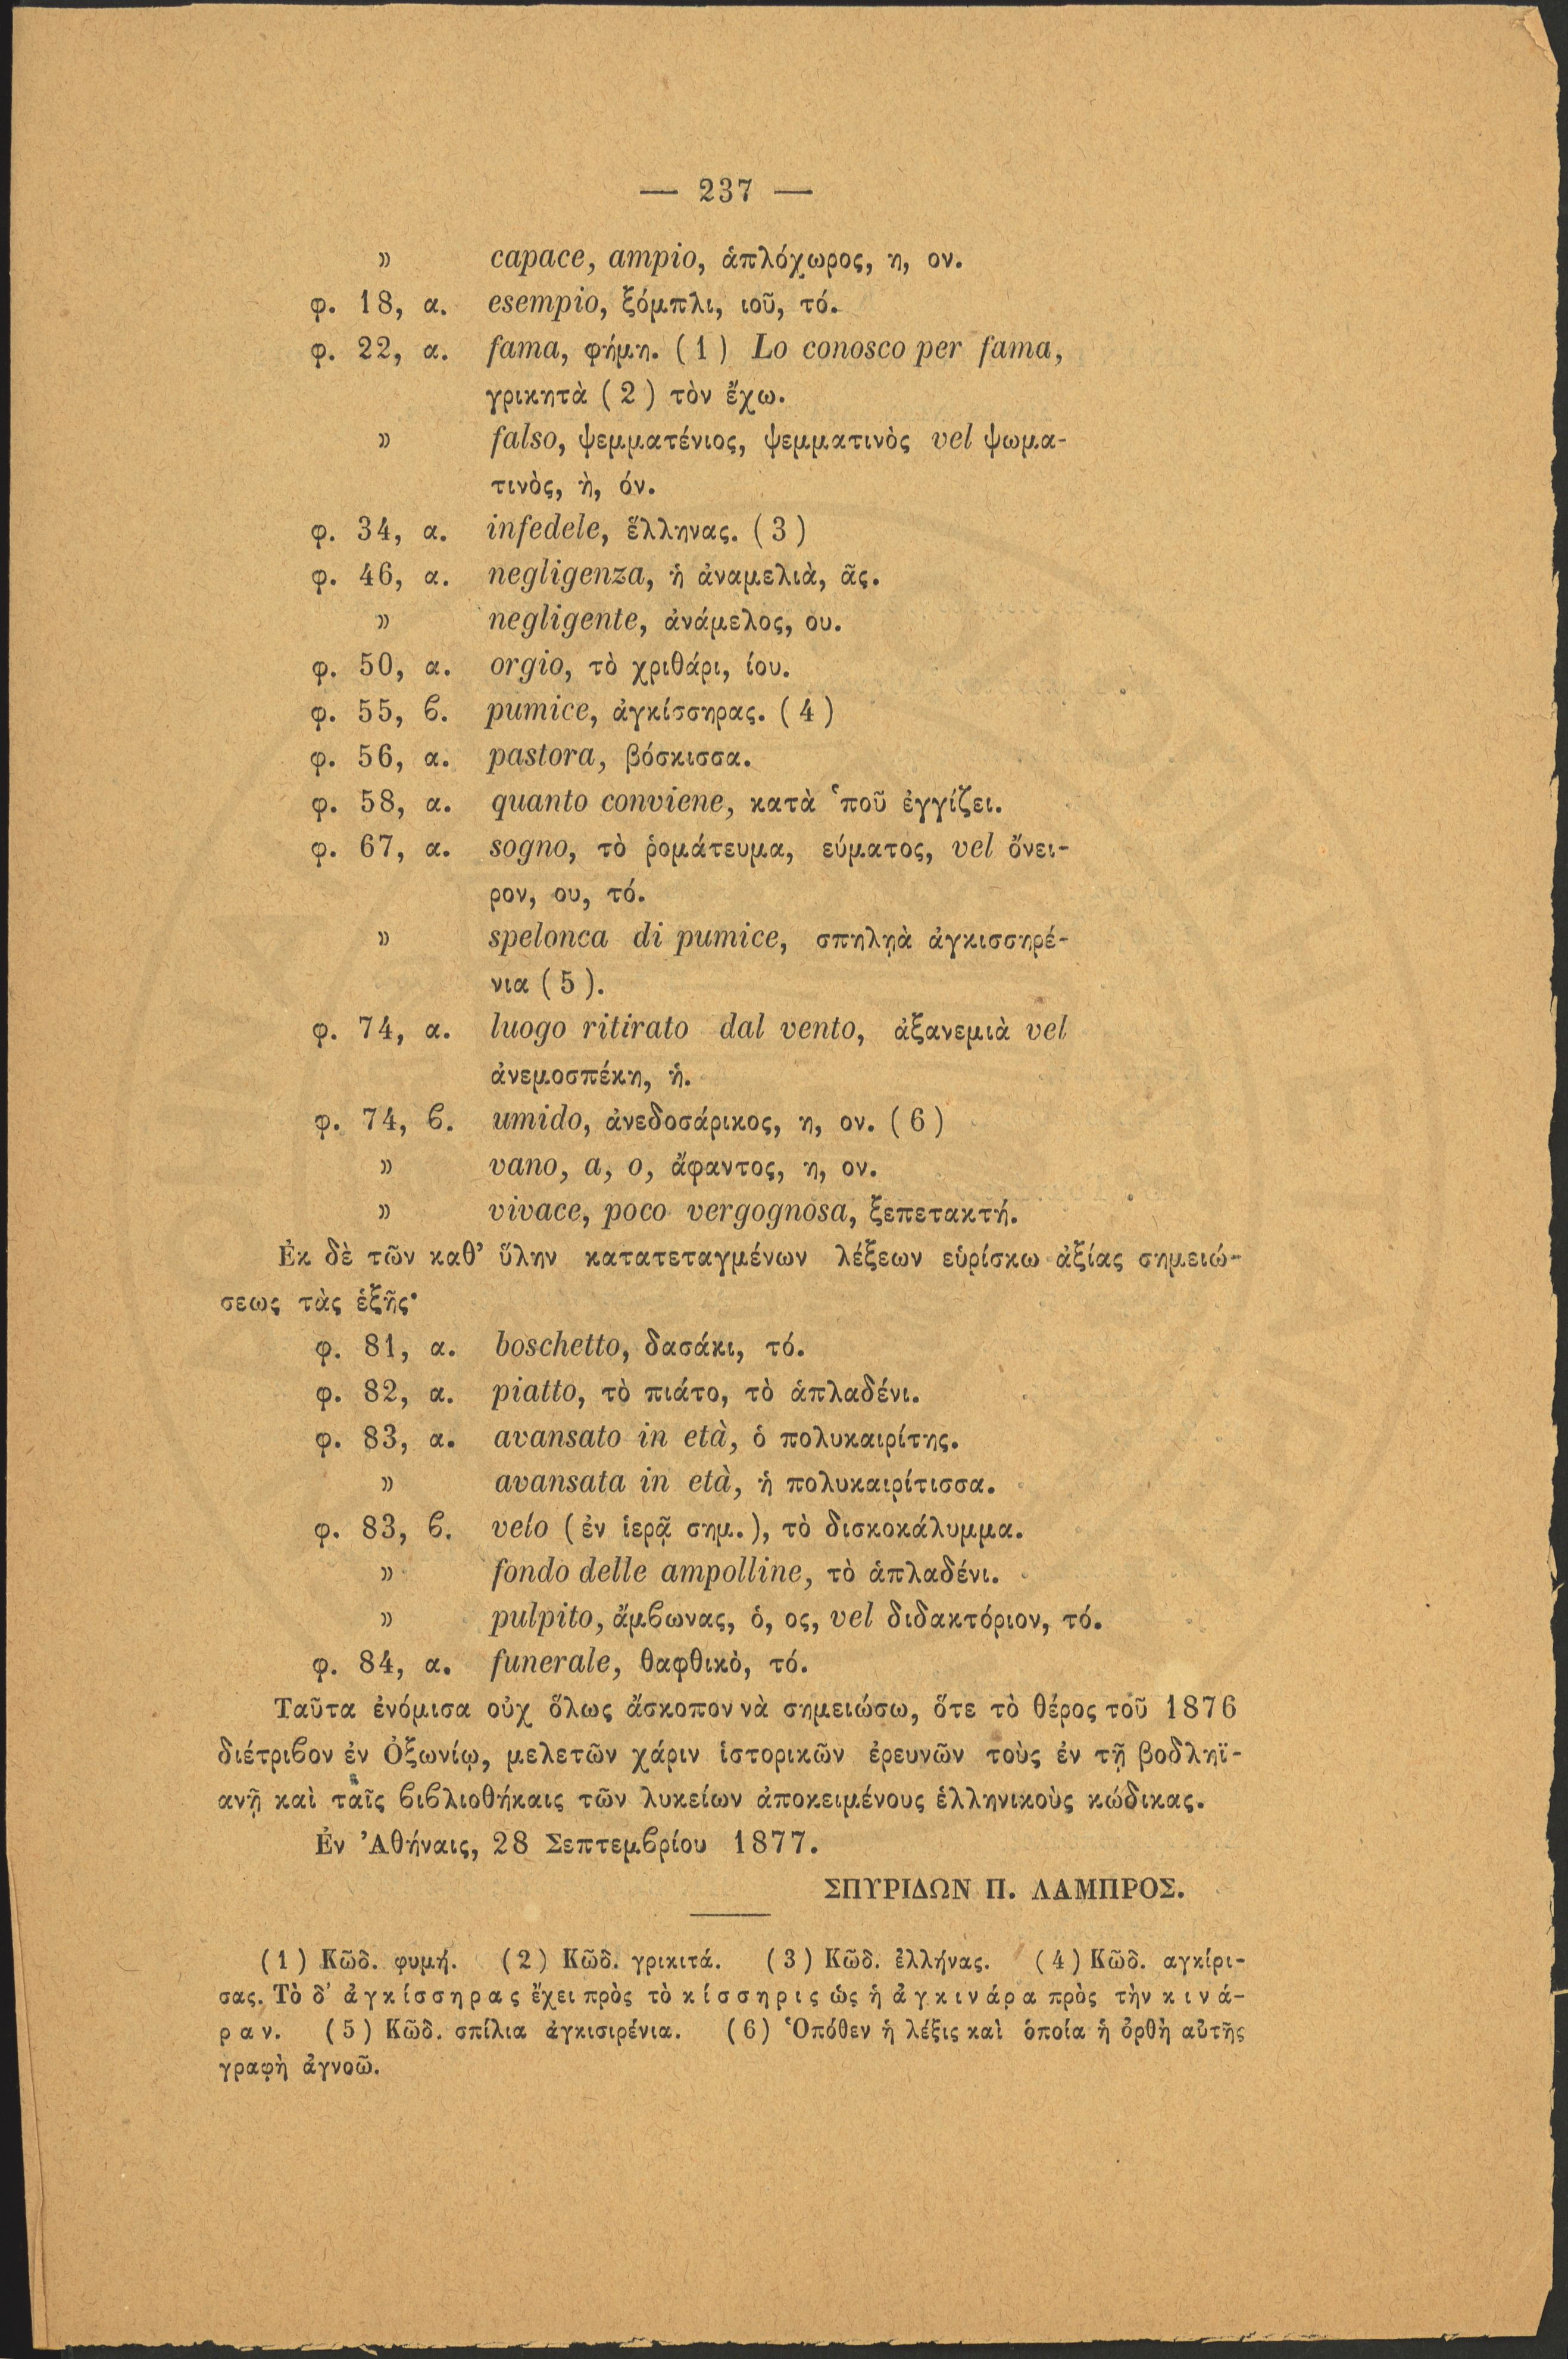 — 237 —
» capace, ampio, ἁπλόχωρος, η, ον.
φ. 18, α. esempio, ξόμπλι, ιοῦ, τό.
φ. 22, α. fama, φήμη. (1) Lo conosco per fama,
γρικητὰ (2) τὸν ἔχω.
» falso, ψεμματένιος, ψεμματινὸς vel ψωμα-
τινὸς, ὴ, όν.
φ. 34, α. infedele, ἕλληνας. (3)
φ. 46, α. negligenza, ἡ ἀναμελιὰ, ᾶς.
» negligente, ἀνάμελος, ου.
φ. 50, α. orgio, τὸ χριθάρι, ίου.
φ. 55, ϐ. pumice, ἀγκίσσηρας. (4)
φ. 56, α. pastora, βόσκισσα.
φ. 58, α. quanto conviene, κατὰ ῾ποῦ ἐγγίζει.
φ. 67, α. sogno, τὸ ῥομάτευμα, εύματος, vel ὄνει-
ρον, ου, τό.
» spelonca di pumice, σπηλῃὰ ἀγκισσηρέ-
νια (5).
φ. 74, α. luogo ritirato dal vento, ἀξανεμιὰ vel
ἀνεμοσπέκη, ἡ.
φ. 74, ϐ. umido, ἀνεδοσάρικος, η, ον. (6)
» vano, a, o, ἄφαντος, η, ον.
» vivace, poco vergognosa, ξεπετακτή.
Ἐκ δὲ τῶν καθ’ ὕλην κατατεταγμένων λέξεων εὑρίσκω ἀξίας σημειώ-
σεως τὰς ἑξῆς·
φ. 81, α. boschetto, δασάκι, τό.
φ. 82, α. piatto, τὸ πιάτο, τὸ ἁπλαδένι.
φ. 83, α. avansato in età, ὁ πολυκαιρίτης.
» avansata in età, ἡ πολυκαιρίτισσα.
φ. 83, ϐ. velo (ἐν ἱερᾷ σημ.), τὸ δισκοκάλυμμα.
» fondo delle ampolline, τὸ ἁπλαδένι.
» pulpito, ἄμϐωνας, ὁ, ος, vel διδακτόριον, τό.
φ. 84, α. funerale, θαφθικὸ, τό.
Ταῦτα ἐνόμισα οὐχ ὅλως ἄσκοπον νὰ σημειώσω, ὅτε τὸ θέρος τοῦ 1876
διέτριϐον ἐν Ὀξωνίῳ, μελετῶν χάριν ἱστορικῶν ἐρευνῶν τοὺς ἐν τῇ βοδληϊ-
ανῇ καὶ ταῖς ϐιϐλιοθήκαις τῶν λυκείων ἀποκειμένους ἑλληνικοὺς κώδικας.
Ἐν Ἀθήναις, 28 Σεπτεμϐρίου 1877.
ΣΠΥΡΙΔΩΝ Π. ΛΑΜΠΡΟΣ.
(1) Κῶδ. φυμή. (2) Κῶδ. γρικιτά. (3) Κῶδ. ἑλλήνας. (4) Κῶδ. αγκίρι-
σας. Τὸ δ’ ἀγκίσσηρας ἔχει πρὸς τὸ κίσσηρις ὡς ἡ ἀγκινάρα πρὸς τὴν κινά-
ραν. (5) Κῶδ. σπίλια ἀγκισιρένια. (6) Ὁπόθεν ἡ λέξις καὶ ὁποία ἡ ὀρθὴ αὐτῆς
γραφὴ ἀγνοῶ.